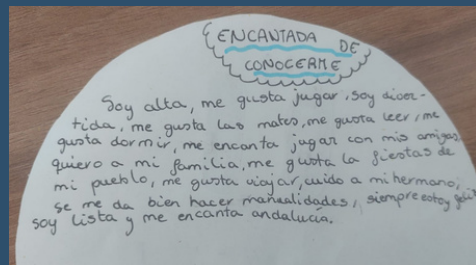 ENCANTADA DE
CONOCERME
Soy alta, me gusta jugar, soy diver-
tida, me gusta las mates, me gusta leer, me
gusta dormir, me encanta jugar con mis amigas,
quiero a mi familia, me gusta la fiestas de
mi pueblo, me gusta viajar, cuido a mi hermano,
se me da bien hacer manualidades, siempre estoy
soy lista y me encanta andalucía.